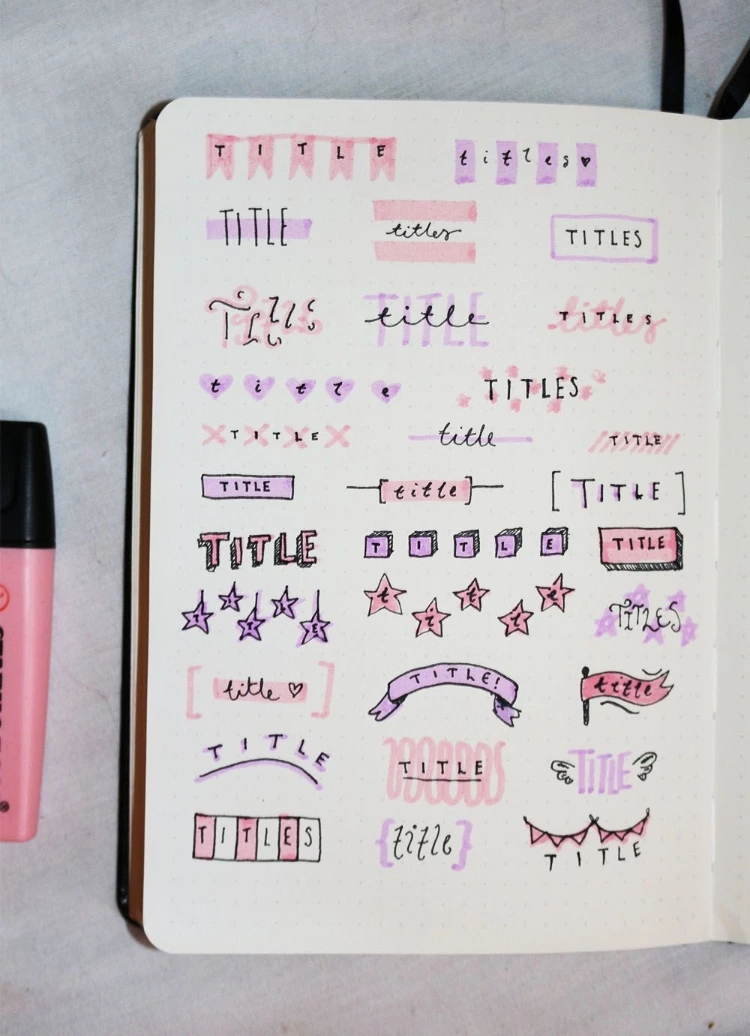 TITLE titles♥
TITLE titles TITLES
TITLE title TITLES
title TITLES
TITLE title TITLE
TITLE [title] [TITLE]
TITLE TITLE TITLE
TITLE title TITLES
[title ♡] TITLE! title
TITLE TITLE TITLE
TITLES {title} TITLE